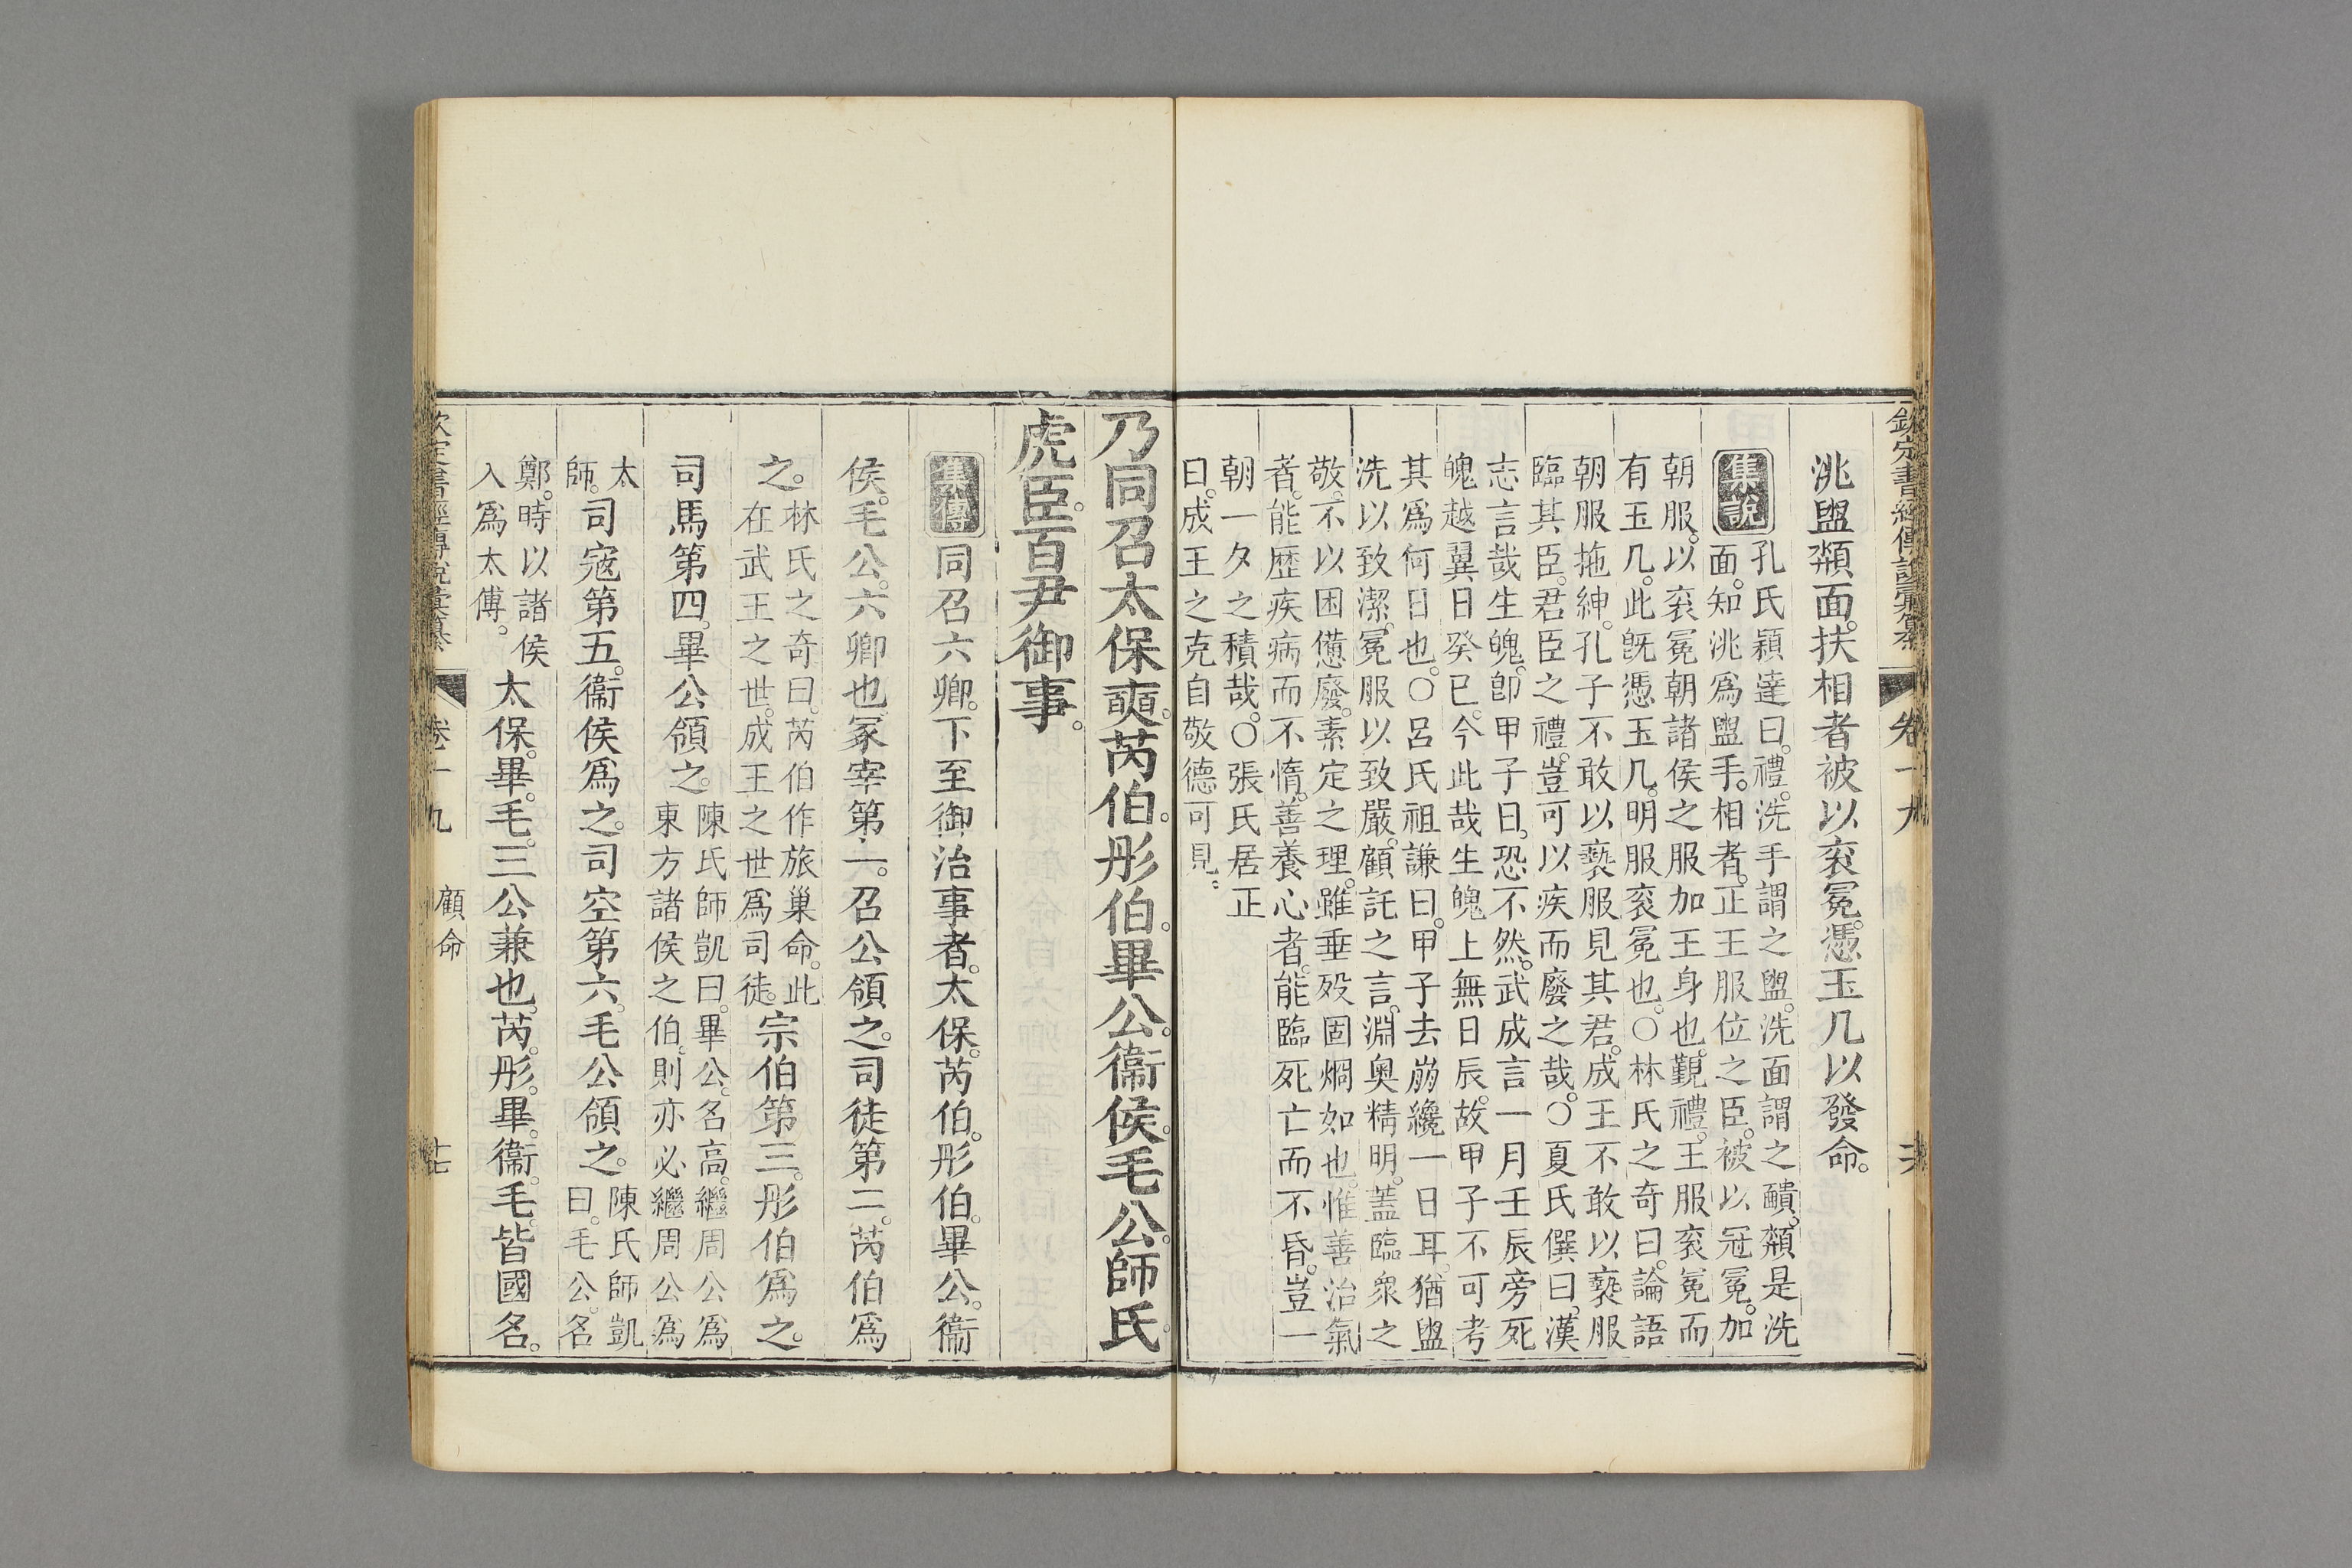 洮盥頮面。扶相者被以袞冕。憑玉几以發命。
集說
孔氏穎達曰。禮。洗手謂之盥。洗面謂之靧。頮是洗
面。知洮爲盥手。相者。正王服位之臣。被以冠冕。加
朝服。以袞冕朝諸侯之服加王身也。覲禮。王服袞冕而
有玉几。此旣憑玉几。明服袞冕也。○林氏之奇曰。論語
朝服拖紳。孔子不敢以褻服見其君。成王不敢以褻服
臨其臣。君臣之禮。豈可以疾而廢之哉。○夏氏僎曰。漢
志言哉生魄。卽甲子日。恐不然。武成言一月壬辰旁死
魄越翼日癸巳。今此哉生魄上無日辰。故甲子不可考
其爲何日也。○呂氏祖謙曰。甲子去崩纔一日耳。猶盥
洗以致潔。冕服以致嚴。顧託之言。淵奧精明。蓋臨衆之
敬。不以困憊廢。素定之理。雖垂歿固炯如也。惟善治氣
者。能歷疾病而不惰。善養心者。能臨死亡而不昏。豈一
朝一夕之積哉。○張氏居正
曰。成王之克自敬德可見。
欽定書經傳說彙纂 卷十九
乃同召太保奭。芮伯。彤伯。畢公。衞侯。毛公。師氏。
虎臣。百尹御事。
集傳
同召六卿。下至御治事者。太保。芮伯。彤伯。畢公。衞
侯。毛公。六卿也。冢宰第一。召公領之。司徒第二。芮伯爲
之。林氏之奇曰。芮伯作旅巢命。此
在武王之世。成王之世爲司徒。宗伯第三。彤伯爲之。
司馬第四。畢公領之。陳氏師凱曰。畢公。名高。繼周公爲
東方諸侯之伯。則亦必繼周公爲
太
師。司寇第五。衞侯爲之。司空第六。毛公領之。陳氏師凱
曰。毛公。名
鄭。時以諸侯
入爲太傅。太保。畢。毛。三公兼也。芮。彤。畢。衞。毛。皆國名。
欽定書經傳說彙纂 卷十九 顧命 十七